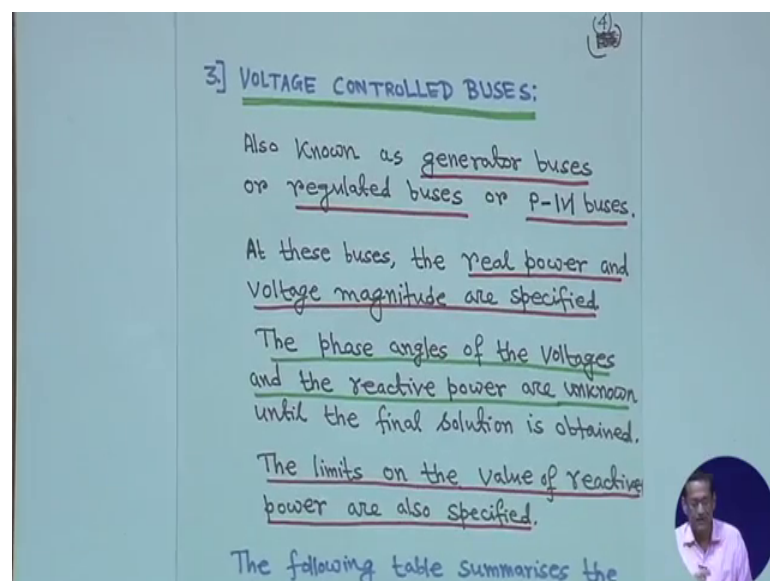 (4)
3.] VOLTAGE CONTROLLED BUSES:
Also known as generator buses
or regulated buses or P-|V| buses.
At these buses, the real power and
voltage magnitude are specified
The phase angles of the voltages
and the reactive power are unknown
until the final solution is obtained.
The limits on the value of reactive
power are also specified.
The following table summarises the